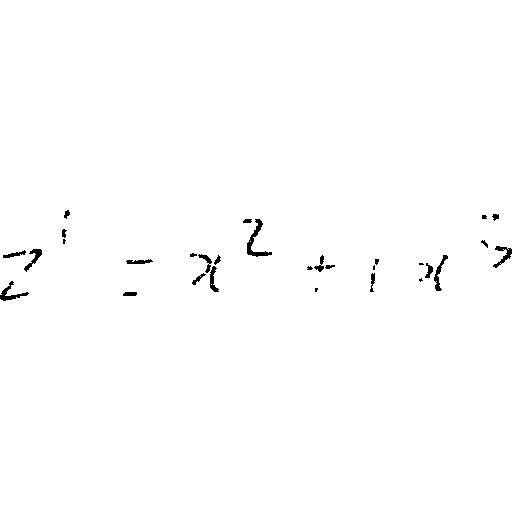 z^i = x^2 + 1 x^3